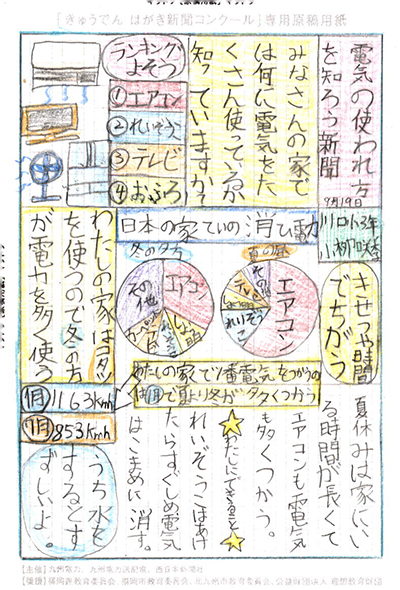 「きゅうでん はがき新聞コンクール」専用原稿用紙
電気の使われ方
を知ろう新聞
9月19日
川口小3年
みなさんの家で
は何に電気をた
くさん使っているか
知っていますか?
ランキング
よそう
①エアコン
②れいぞうこ
③テレビ
④おふろ
日本の家ていの消ひ電力
夏の昼
エアコン
れいぞうこ
その他
冬の夕方
エアコン
その他
きせつや時間
でちがう
夏休みは家にい
る時間が長くて
エアコンも電気
も多くつかう。
わたしの家はコタツ
を使うので冬の方
が電力を多く使う
わたしの家で1番電気をつかうの
は1月で夏より冬が多くつかう
1月 1163Kmh
7月 853Kmh
☆わたしにできること☆
れいぞうこはあけ
たらすぐしめ電気
はこまめに消す。
うち水を
するとす
ずしいよ。
【主催】九州電力、九州電力送配電、西日本新聞社